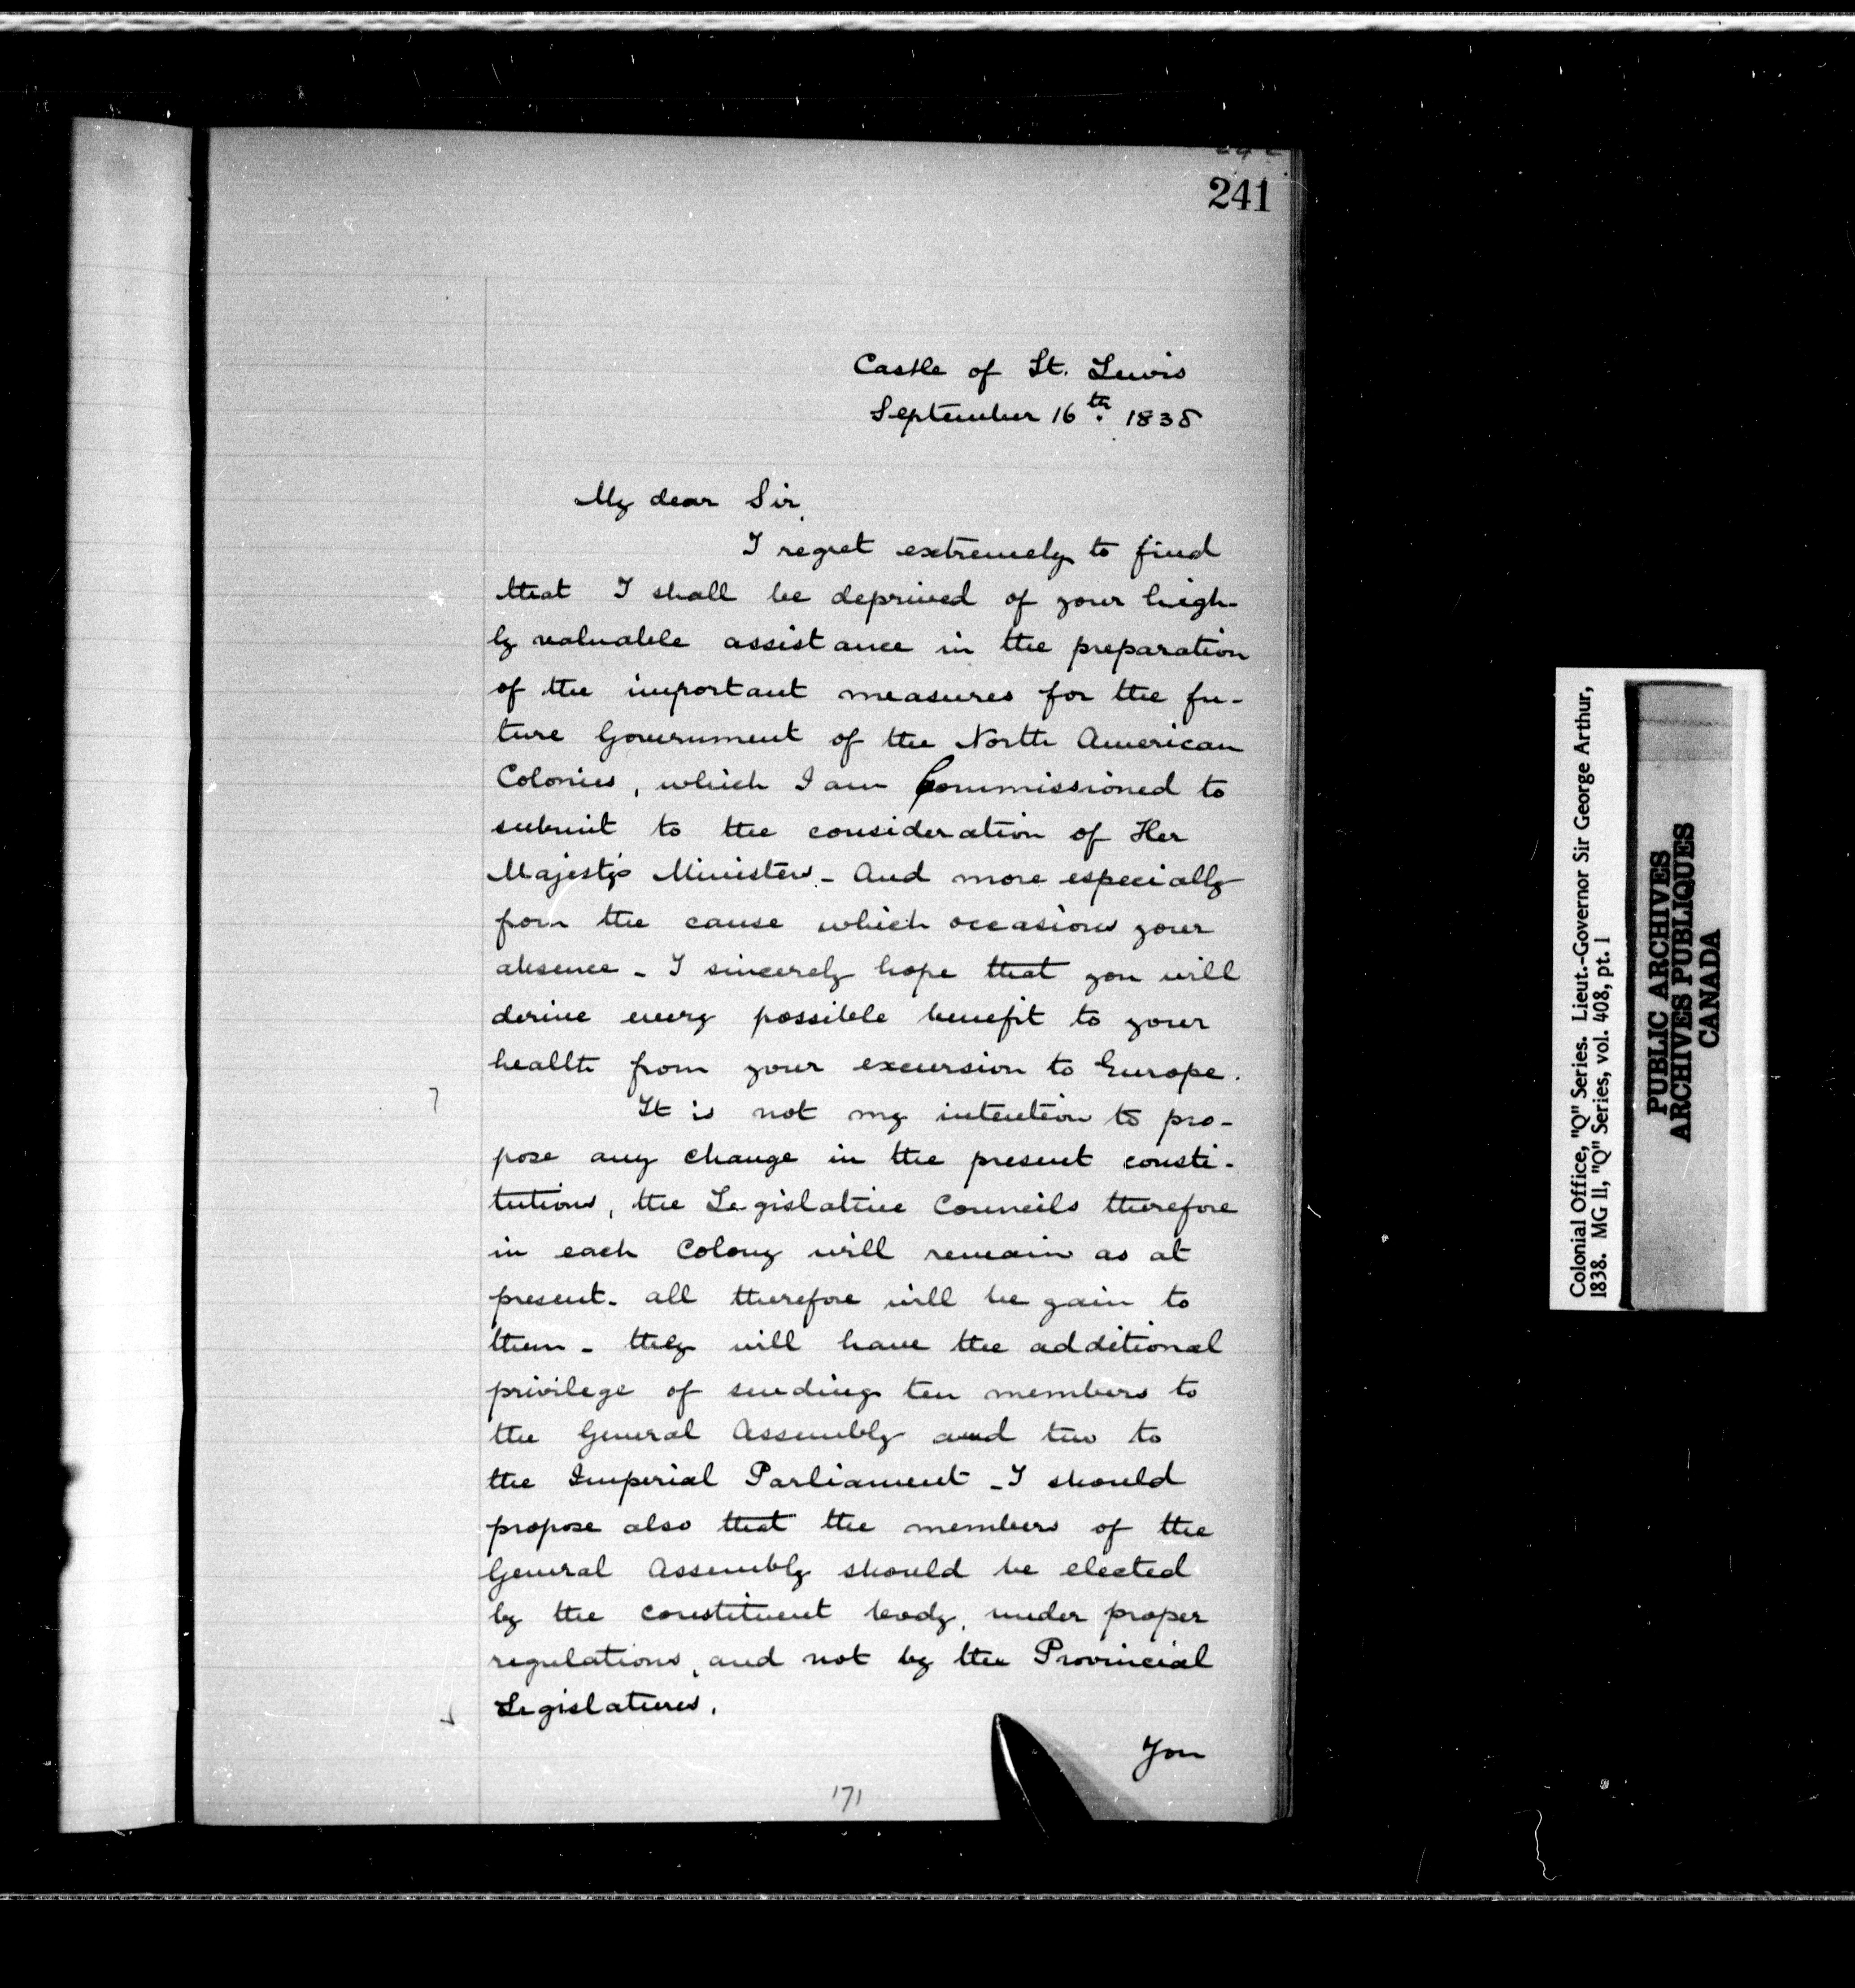 241
Castle of St. Lewis
September 16th. 1838
My dear Sir,
I regret extremely to find
that I shall be deprived of your high-
ly valuable assistance in the preparation
of the important measures for the fu-
ture Government of the North American
Colonies, which I am Commissioned to
submit to the consideration of Her
Majesty's Ministers - And more especially
from the cause which occasions your
absence - I sincerely hope that you will
derive every possible benefit to your
health from your excursion to Europe.
It is not my intention to pro-
pose any change in the present consti-
tutions, the Legislative Councils therefore
in each Colony will remain as at
present - all therefore will be gain to
them - they will have the additional
privilege of sending ten members to
the General Assembly and two to
the Imperial Parliament - I should
propose also that the members of the
General Assembly should be elected
by the constituent body, under proper
regulations, and not by the Provincial
Legislatures.
You
171
Colonial Office, "Q" Series. Lieut.-Governor Sir George Arthur,
1838. MG 11, "Q" Series, vol. 408, pt. 1
PUBLIC ARCHIVES
ARCHIVES PUBLIQUES
CANADA